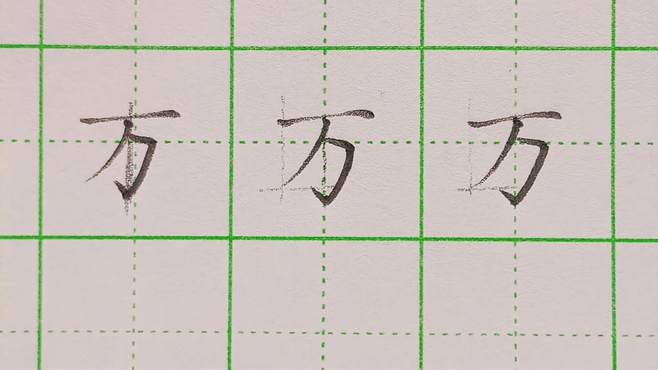 万 万 万